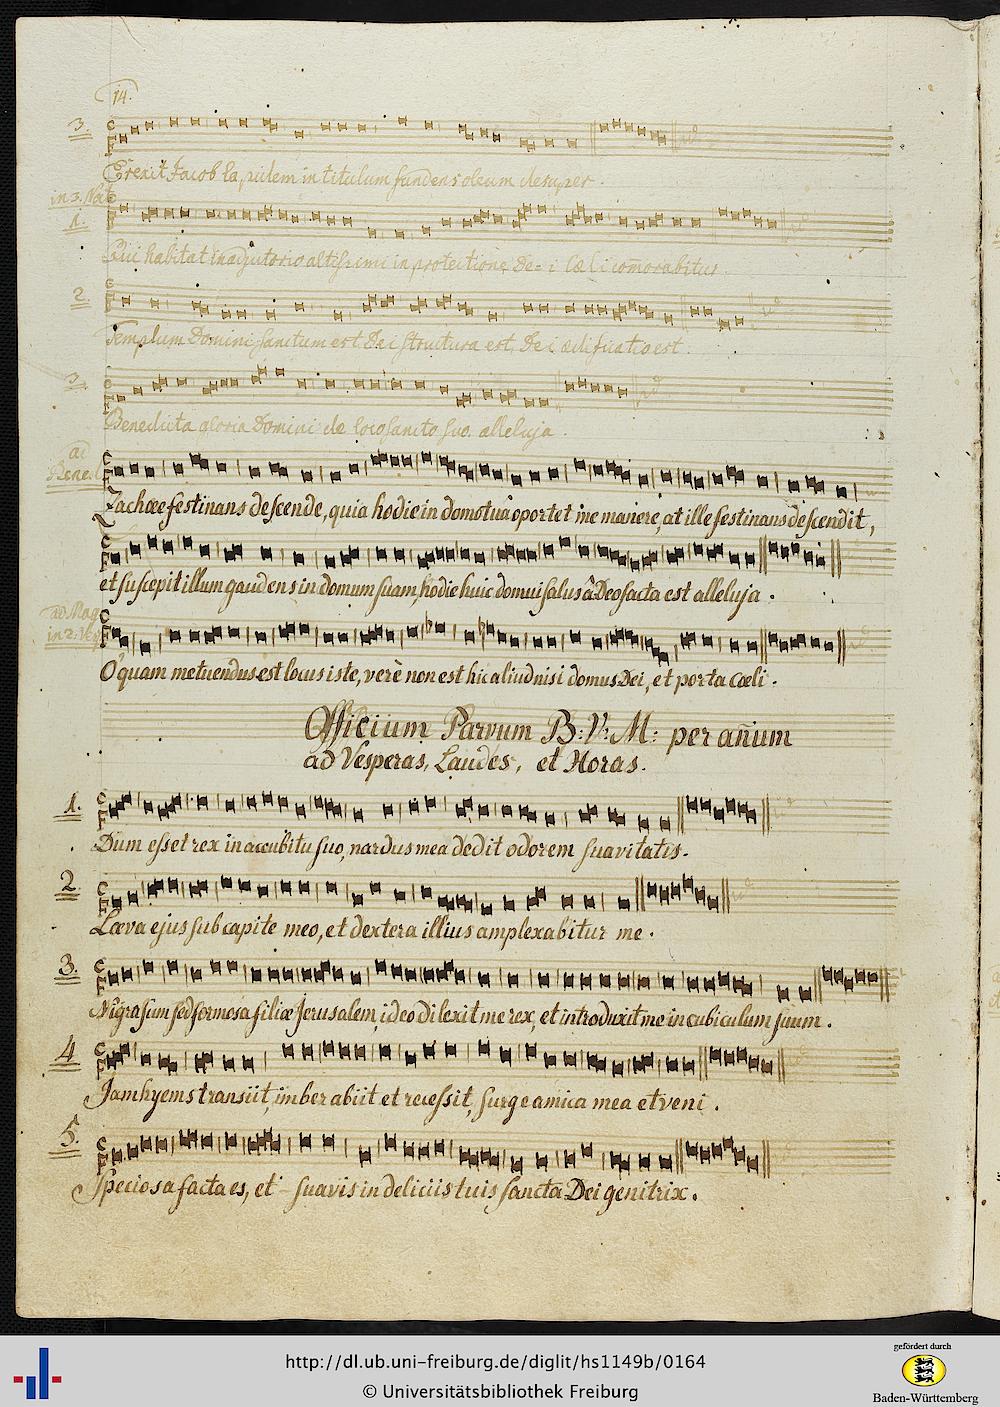 14.
3.
Erexit Jacob lapidem in titulum fundens oleum desuper.
in 3. Noct.
1.
Qui habitat in adjutorio altissimi in protectione De=i Cæli com̄orabitur.
2.
Templum Domini sanctum est Dei structura est, Dei ædificatio est.
3.
Benedicta gloria Domini de loco sancto suo. alleluja.
ad
Bened.
Zachæe festinans descende, quia hodie in domo tuâ oportet me manere, at ille festinans descendit,
et suscepit illum gaudens in domum suam, hodie huic domui salus â Deo facta est alleluja.
ad Mag.
in 2. Vesp.
O quam metuendus est locus iste, verè non est hic aliud nisi domus Dei, et porta cæli.
Officium Parvum B: V: M: per an̄um
ad Vesperas, Laudes, et Horas.
1.
Dum esset rex in accubitu suo, nardus mea dedit odorem suavitatis.
2.
Læva ejus sub capite meo, et dextera illius amplexabitur me.
3.
Nigra sum sed formosa filiæ Jerusalem, ideo dilexit me rex, et introduxit me in cubiculum suum.
4
Jam hyems transiit, imber abiit et recessit, surge amica mea et veni.
5.
Speciosa facta es, et suavis in deliciis tuis sancta Dei genitrix.
http://dl.ub.uni-freiburg.de/diglit/hs1149b/0164
© Universitätsbibliothek Freiburg
gefördert durch
Baden-Württemberg